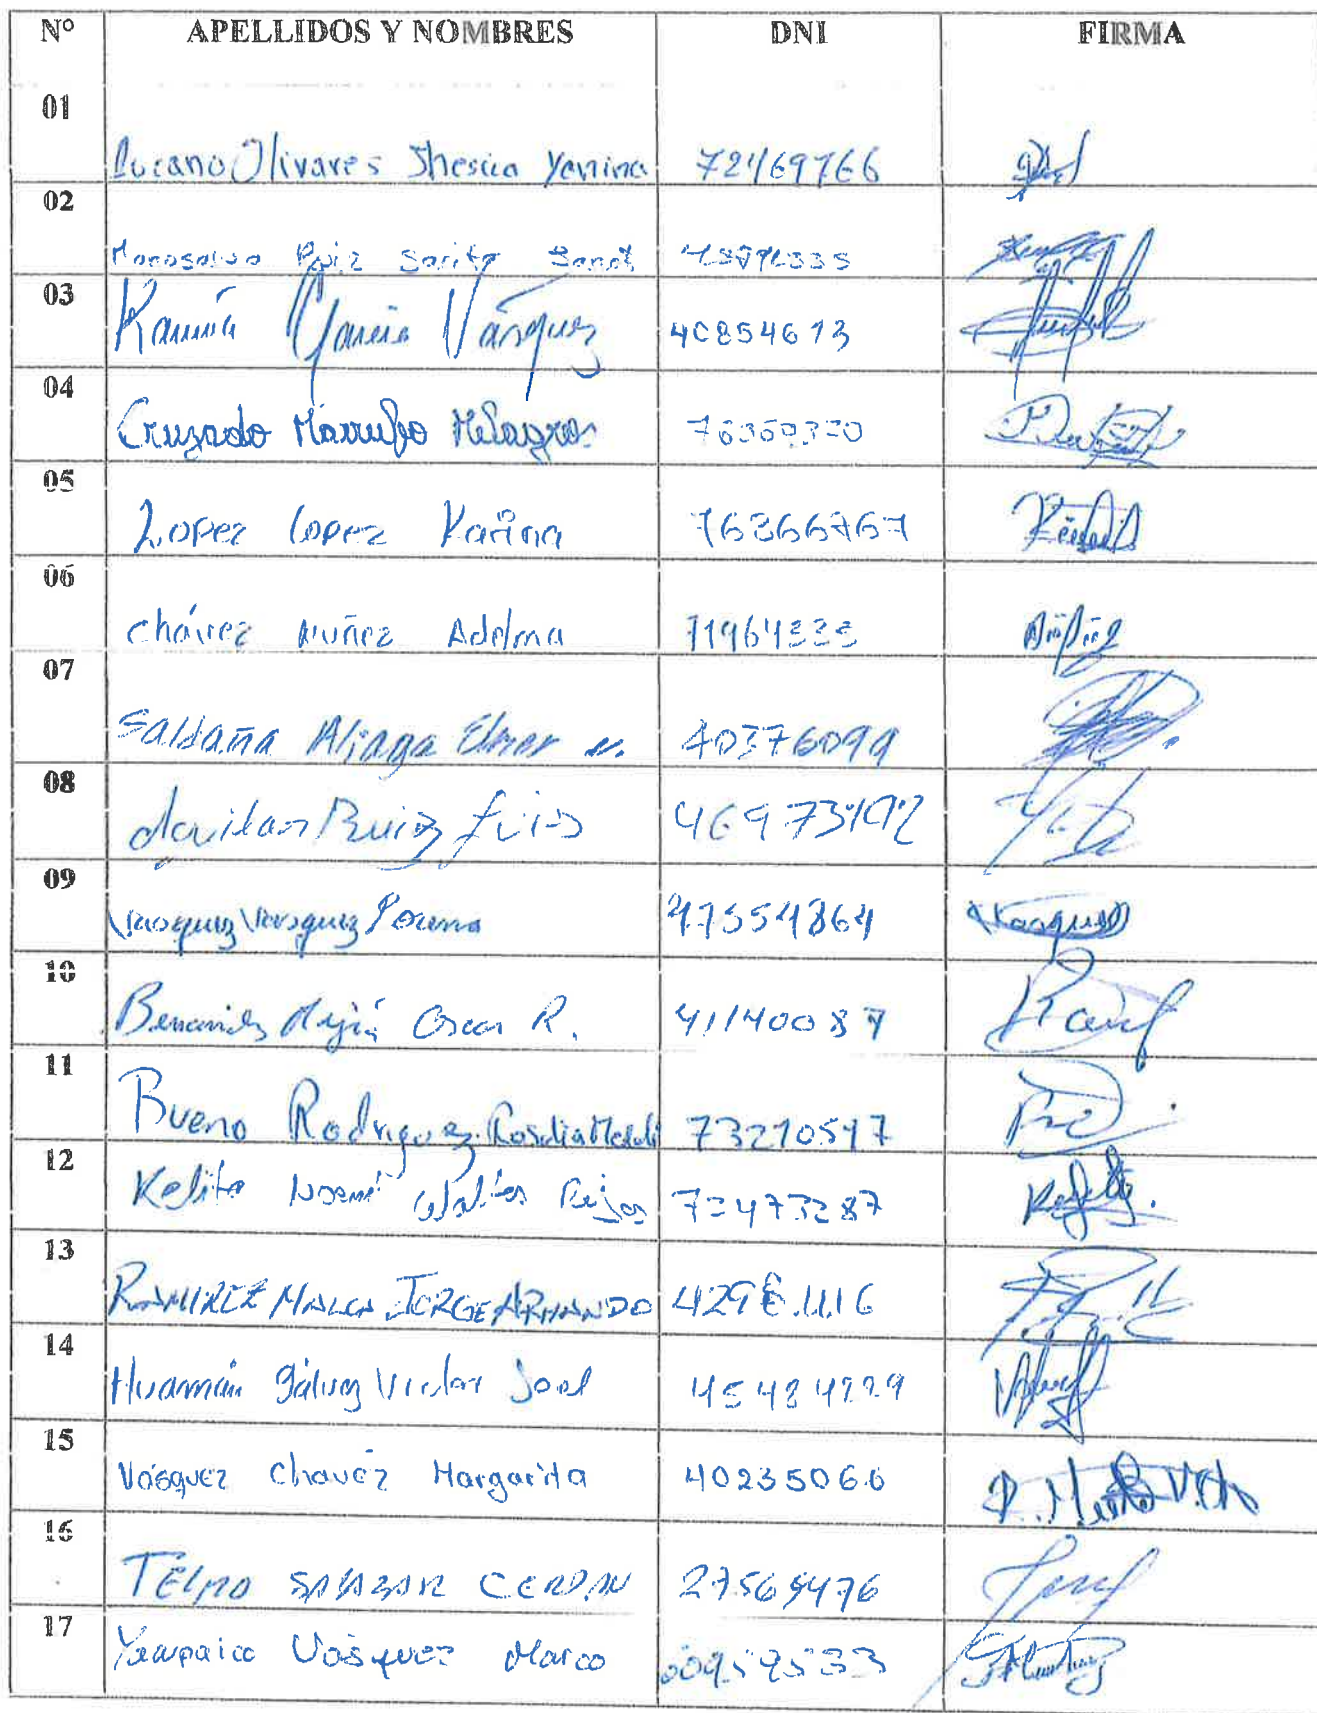 N° APELLIDOS Y NOMBRES DNI FIRMA
01 Lucano Olivares Jhesica Yanina 72469766
02 Ruiz Sarita
03 Karina García Vásquez 40854673
04 Cruzado Marrufo Milagros 76369330
05 Lopez Lopez Karina 76366767
06 Chávez Nuñez Adelma 71964333
07 Saldaña Aliaga Elmer N. 40376099
08 Ruiz 46973492
09 Vasquez Vasquez 47554864 Vasquez
10 Benavides Mejía Oscar R. 41140087
11 Bueno Rodriguez Rosalia 73270547
12 Kelita Noemí Rojas 73473287
13 RAMIREZ MALCA JORGE ARMANDO
14 Huamán Gálvez Victor Joel 45484229
15 Vásquez Chavéz Margarita 40235060
16 TELMO SALAZAR CERDAN 27569476
17 Yaupaico Vásquez Marco